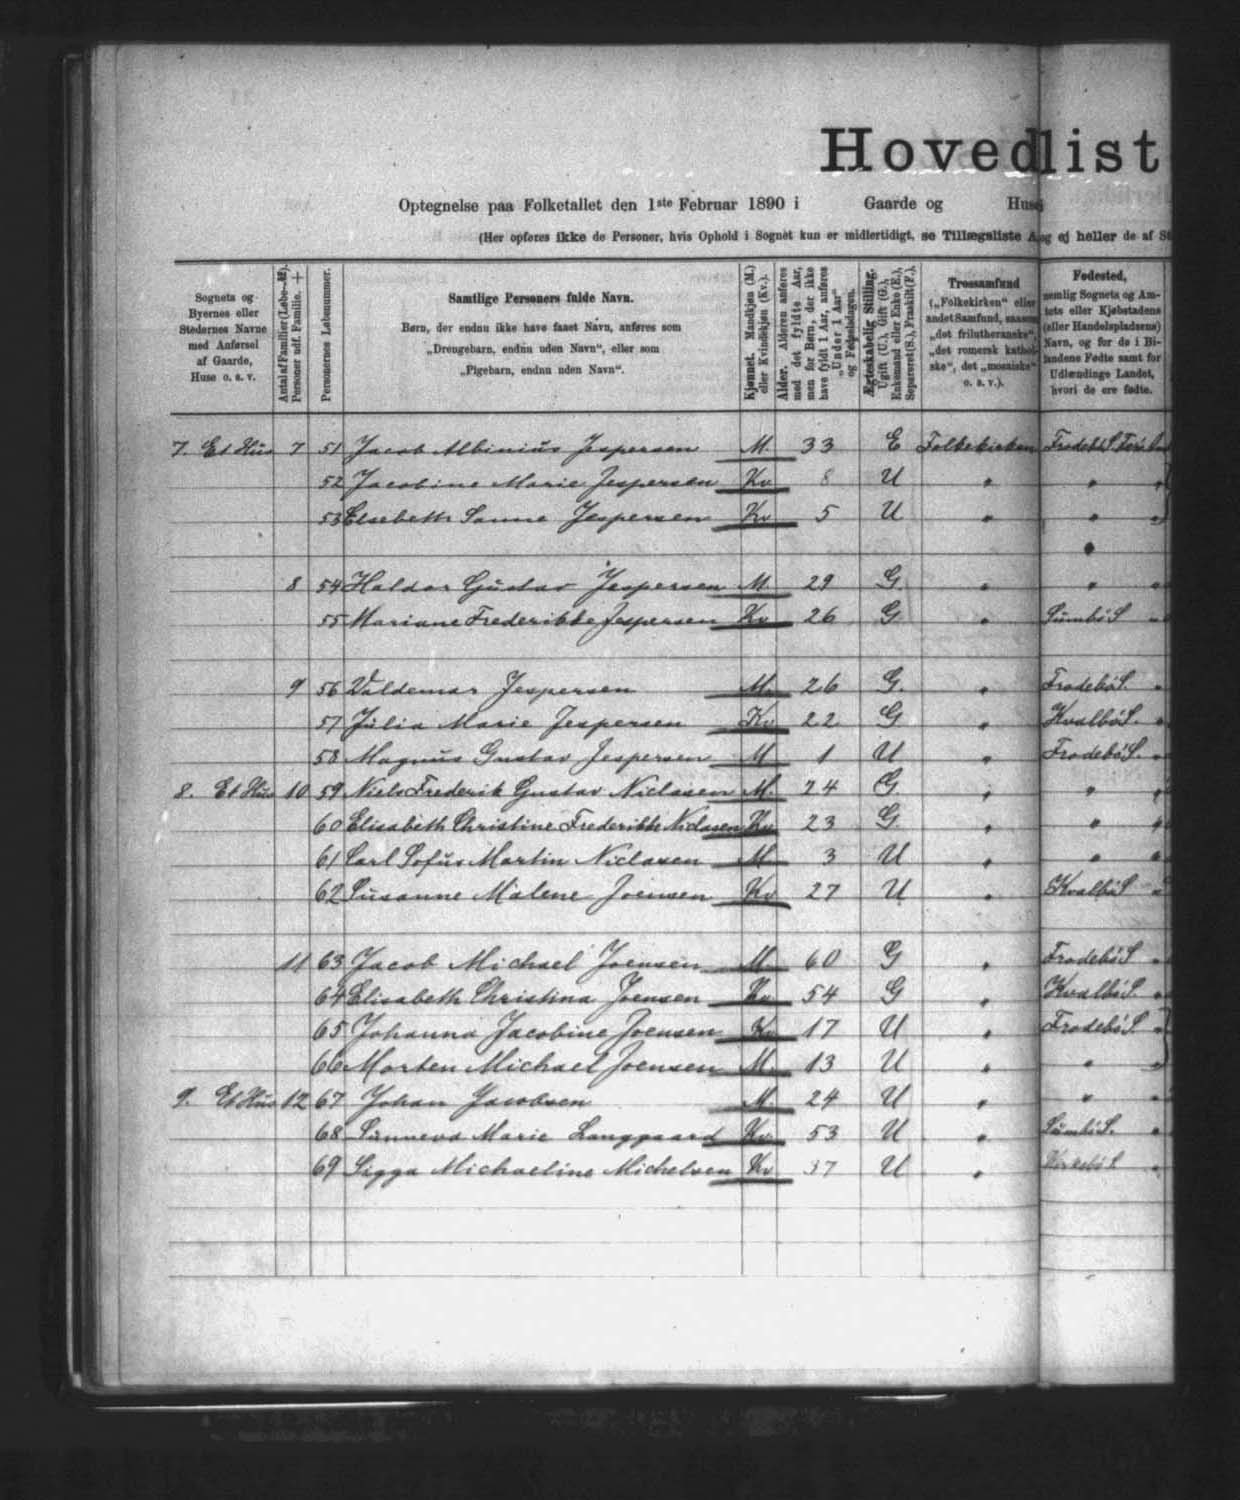 Hovedlist
Optegnelse paa Folketallet den 1ste Februar 1890 i Gaarde og Huse
(Her opføres ikke de Personer, hvis Ophold i Sognet kun er midlertidigt, se Tillægsliste A, og ej heller de af St
Sognets og Byernes eller Stedernes Navne med Anførsel af Gaarde, Huse o. s. v.
Antal af Familier (Løbe-№). Personer udf. Familie. +
Personernes Løbenummer.
Samtlige Personers fulde Navn.
Børn, der endnu ikke have faaet Navn, anføres som
„Drengebarn, endnu uden Navn“, eller som
„Pigebarn, endnu uden Navn“.
Kjønnet. Mandkjøn (M.) eller Kvindekjøn (Kv.).
Alder. Alderen anføres med det fyldte Aar, men for Børn, der ikke have fyldt 1 Aar, anføres „Under 1 Aar“ og Fødselsdagen.
Ægteskabelig Stilling. Ugift (U.), Gift (G.), Enkemand eller Enke (E.), Separeret (S.), Fraskilt (F.).
Trossamfund
(„Folkekirken“ eller andet Samfund, saasom „det frilutheranske“, „det romersk katholske“, det „mosaiske“ o. s. v.).
Fødested,
nemlig Sognets og Amtets eller Kjøbstadens (eller Handelspladsens) Navn, og for de i Bilandene Fødte samt for Udlændinge Landet, hvori de ere fødte.
7. Et Hus 7 51 Jacob Albinius Jespersen M. 33 E Folkekirken Frodebø S.
52 Jacobine Marie Jespersen Kv 8 U " "
53 Elsebeth Sanne Jespersen Kv 5 U " "
8 54 Haldor Gustav Jespersen M. 29 G. " "
55 Mariane Frederikke Jespersen Kv 26 G " Sumbø S
9 56 Valdemar Jespersen M. 26 G. " Frodebø S.
57 Júlia Marie Jespersen Kv 22 G " Kvalbø S.
58 Magnus Gustav Jespersen M 1 U " Frodebø S.
8. Et Hus 10 59 Niels Frederik Gustav Niclasen M. 24 G " "
60 Elisabeth Christine Frederikke Niclasen Kv 23 G " "
61 Carl Sofus Martin Niclasen M 3 U " "
62 Susanne Malene Joensen Kv 27 U " Kvalbø S
11 63 Jacob Michael Joensen M 60 G " Frodebø S
64 Elisabeth Christina Joensen Kv 54 G " Kvalbø S.
65 Johanna Jacobine Joensen Kv 17 U " Frodebø S
66 Morten Michael Joensen M. 13 U " "
9. Et Hus 12 67 Johan Jacobsen M 24 U " "
68 Sunneva Marie Langgaard Kv 53 U " Sumbø S.
69 Sigga Michaeline Michelsen Kv 37 U "